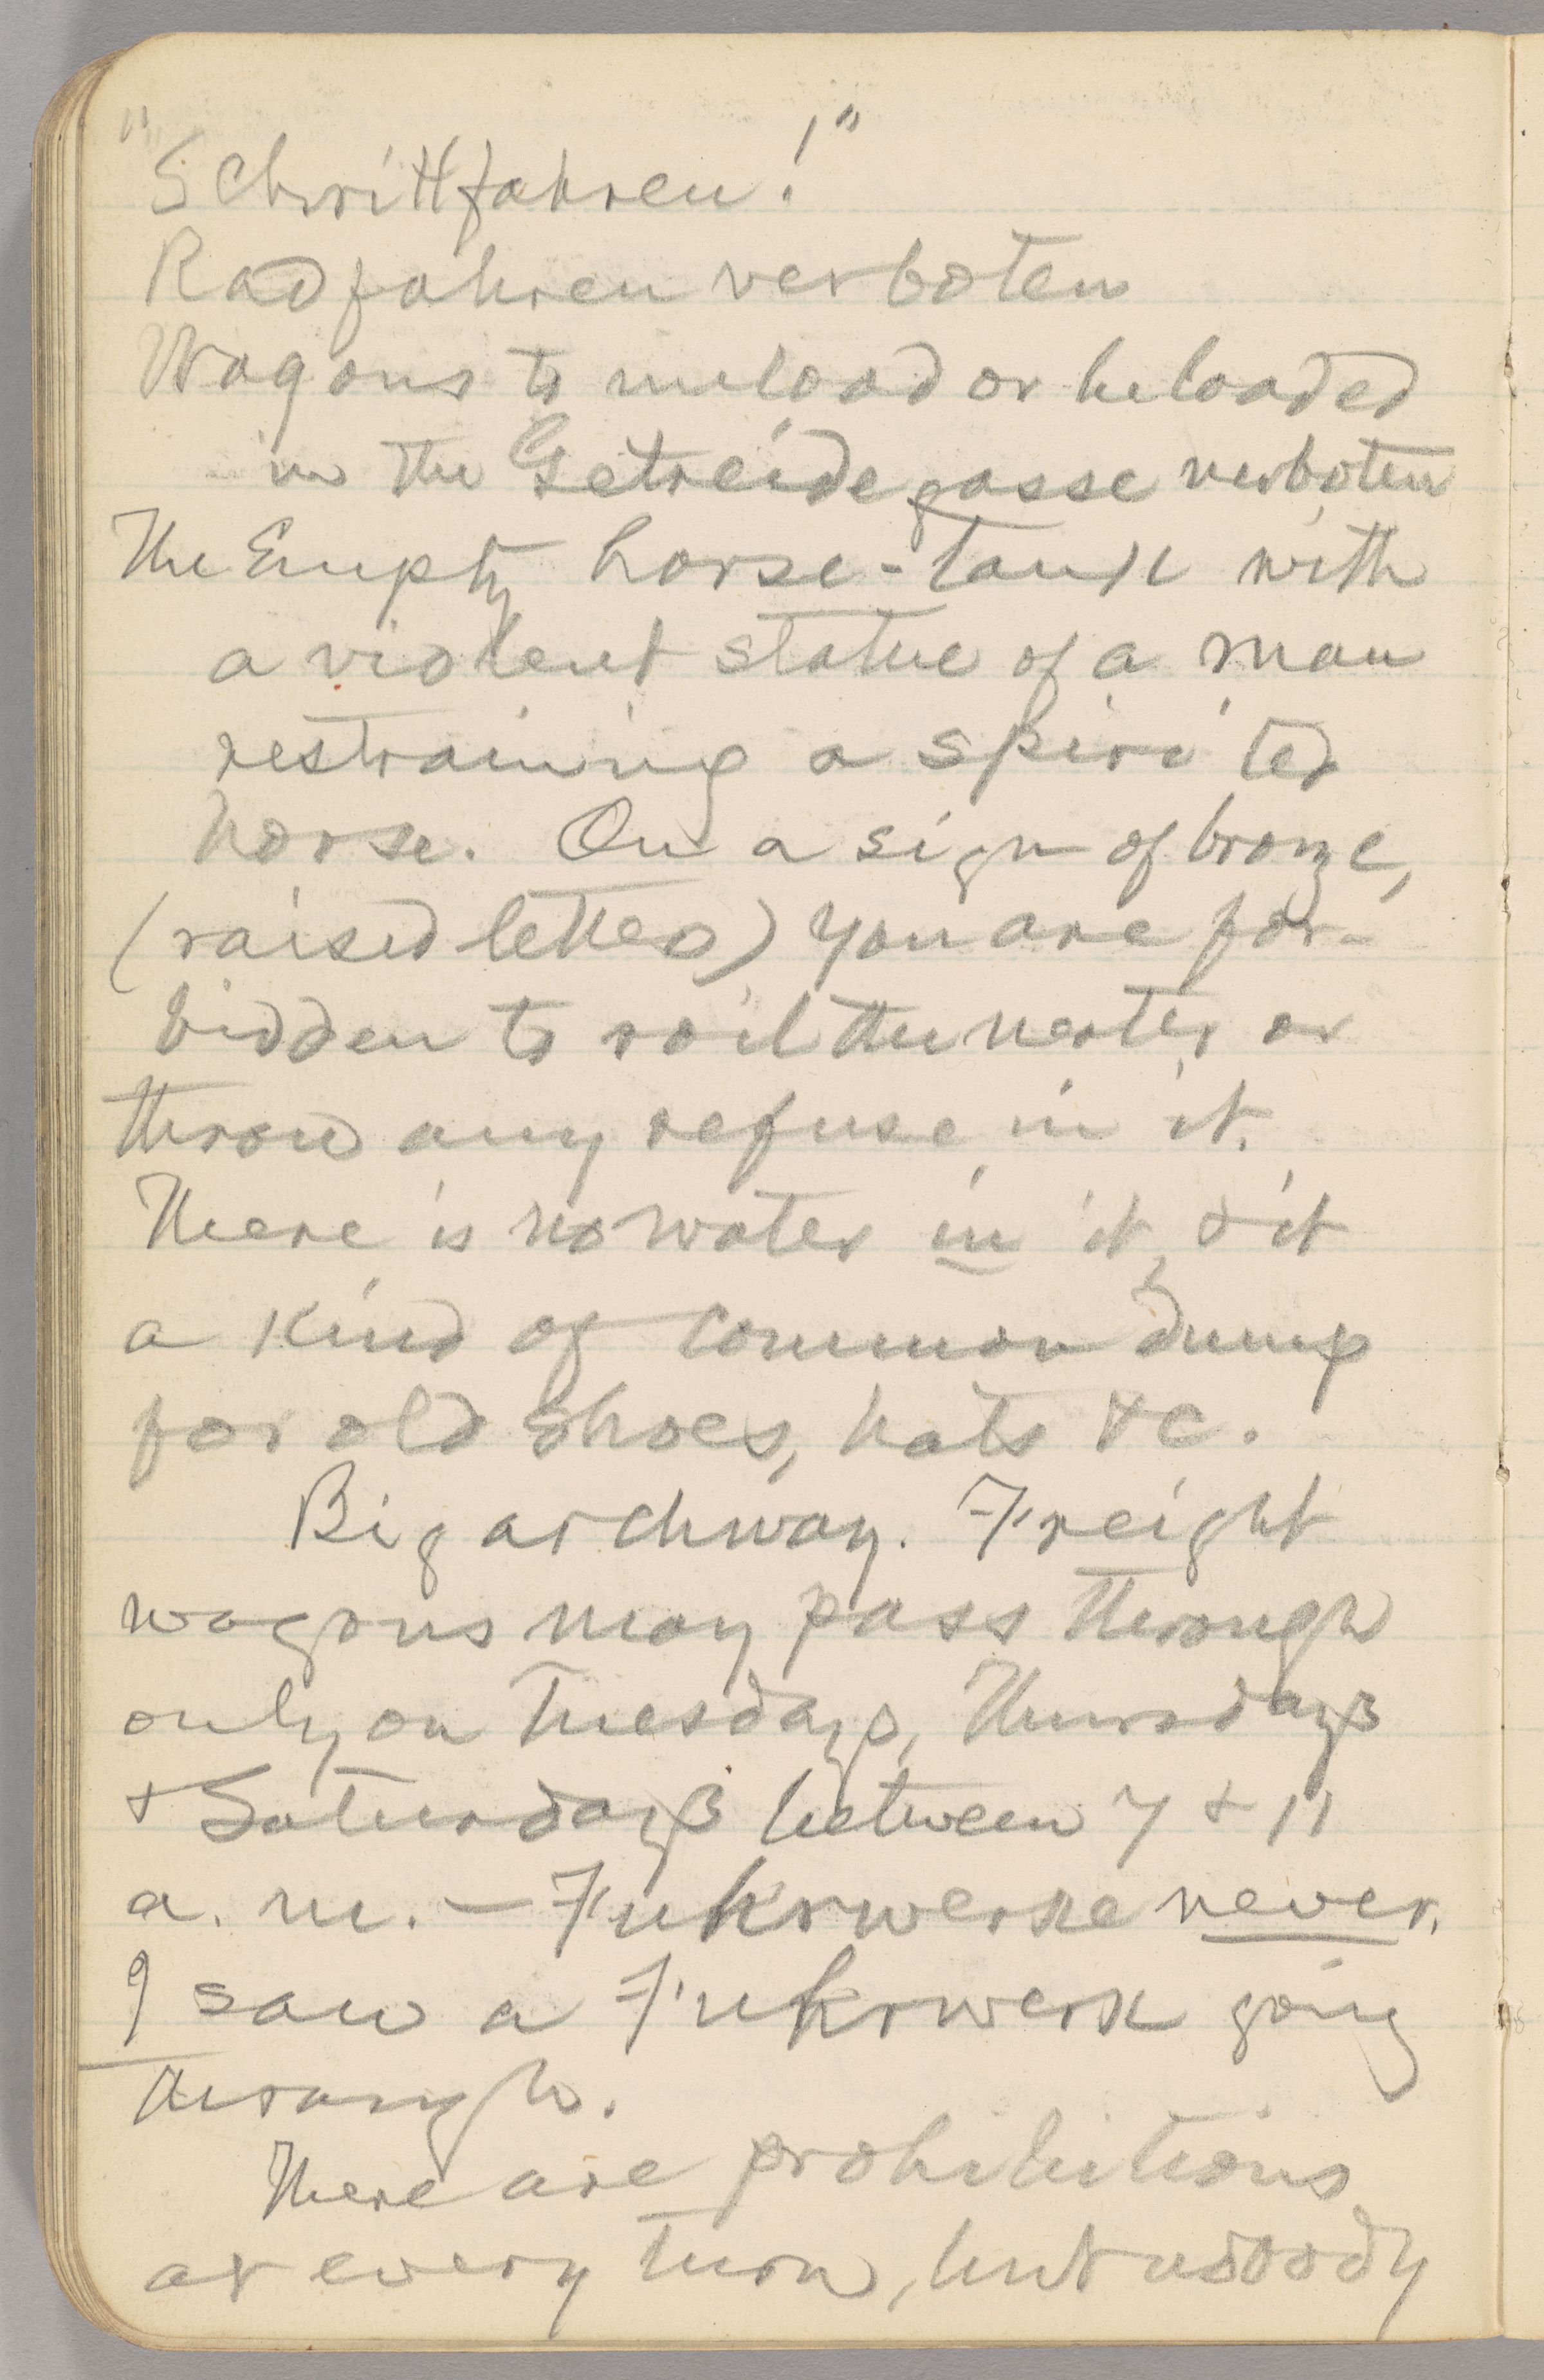 "Schrittfahren!"
Radfahren verboten
Wagons to unload or be loaded
in the Getreidegasse verboten
The Empty horse-tank with
a violent statue of a man
restraining a spirited
horse. On a sign of bronze,
(raised letters) you are for-
bidden to soil the water or
throw any refuse in it.
There is no water in it, & it
a kind of common dump
for old shoes, hats &c.
Big archway. Freight
wagons may pass through
only on Tuesdays, Thursdays
& Saturdays between 7 & 11
a. m. — Fuhrwerke never.
I saw a Fuhrwerk going
through.
There are prohibitions
at every turn, but nobody